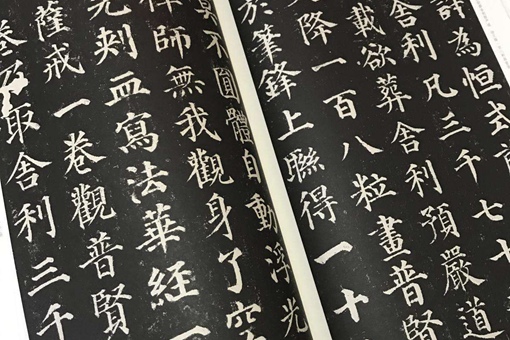 許為恒式
舍利凡三千七十
載欲葬舍利預嚴道
降一百八粒畫普賢
於筆鋒上聯得一十
莫不圓體自動浮光
禪師無我觀身了空
先刺血寫法華經一
薩戒一卷觀普賢
卷乃取舍利三千